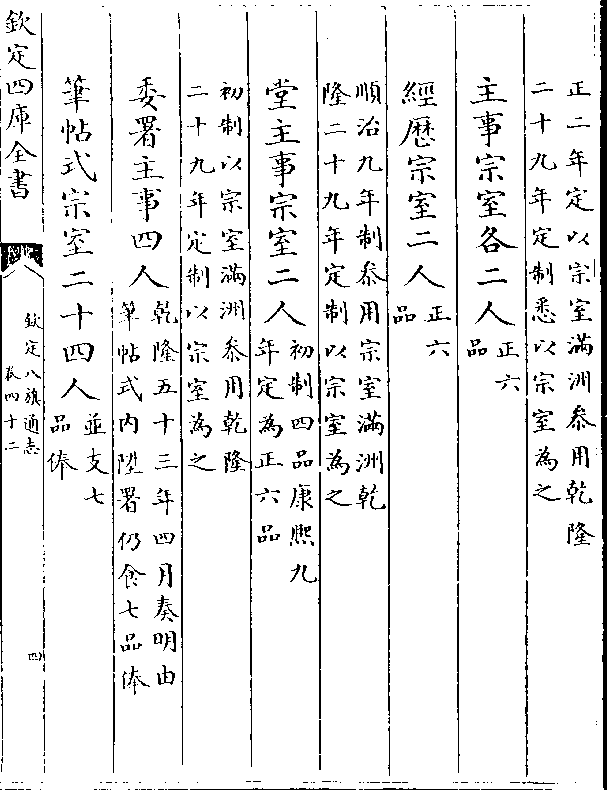 正二年定以宗室滿洲叅用乾隆
二十九年定制悉以宗室為之
主事宗室各二人正六
品
經歴宗室二人正六
品
順治九年制叅用宗室滿洲乾
隆二十九年定制以宗室為之
堂主事宗室二人初制四品康熙九
年定為正六品
初制以宗室滿洲叅用乾隆
二十九年定制以宗室為之
委署主事四人乾隆五十三年四月奏明由
筆帖式内陞署仍食七品俸
筆帖式宗室二十四人並支七
品俸
欽定四庫全書
欽定八旗通志
卷四十二
四